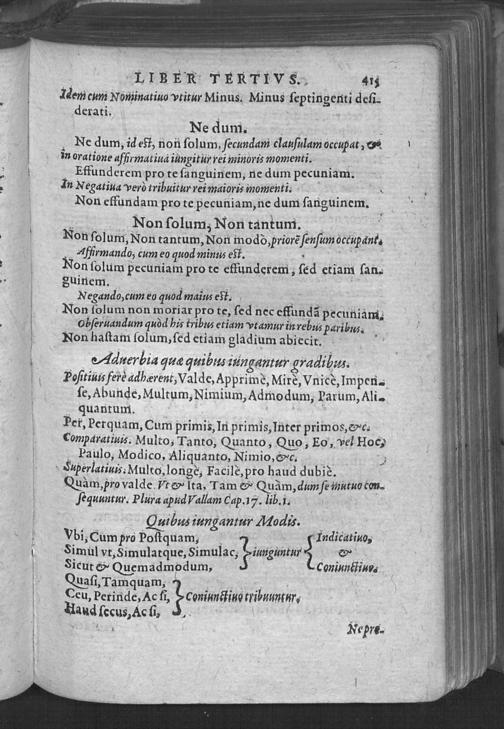 LIBER TERTIVS. 415
Idem cum Nominatiuo vtitur Minus. Minus septingenti desi-
derati.
Ne dum.
Ne dum, id est, non solum, secundam clausulam occupat, &
in oratione affirmatiua iungitur rei minoris momenti.
Effunderem pro te sanguinem, ne dum pecuniam.
In Negatiua verò tribuitur rei maioris momenti.
Non effundam pro te pecuniam, ne dum sanguinem.
Non solum, Non tantum.
Non solum, Non tantum, Non modò, priorē sensum occupant.
Affirmando, cum eo quod minus est.
Non solum pecuniam pro te effunderem, sed etiam san-
guinem.
Negando, cum eo quod maius est.
Non solum non moriar pro te, sed nec effundā pecuniam.
Obseruandum quòd his tribus etiam vtamur in rebus paribus.
Non hastam solum, sed etiam gladium abiecit.
Aduerbia quæ quibus iungantur gradibus.
Positiuis ferè adhærent, Valde, Apprimè, Mirè, Vnicè, Impen-
se, Abunde, Multum, Nimium, Admodum, Parum, Ali-
quantum.
Per, Perquam, Cum primis, In primis, Inter primos, &c.
Comparatiuis. Multo, Tanto, Quanto, Quo, Eo, vel Hoc,
Paulo, Modico, Aliquanto, Nimio, &c.
Superlatiuis: Multo, longè, Facilè, pro haud dubiè.
Quàm, pro valde. Vt & Ita, Tam & Quàm, dum se mutuo con-
sequuntur. Plura apud Vallam Cap. 17. lib. 1.
Quibus iungantur Modis.
Vbi, Cum pro Postquam, Indicatiuo,
Simul vt, Simulatque, Simulac, iunguntur &
Sicut & Quemadmodum, Coniunctiuo.
Quasi, Tamquam,
Ceu, Perinde, Ac si, Coniunctiuo tribuuntur.
Haud secus, Ac si,
Ne pro-